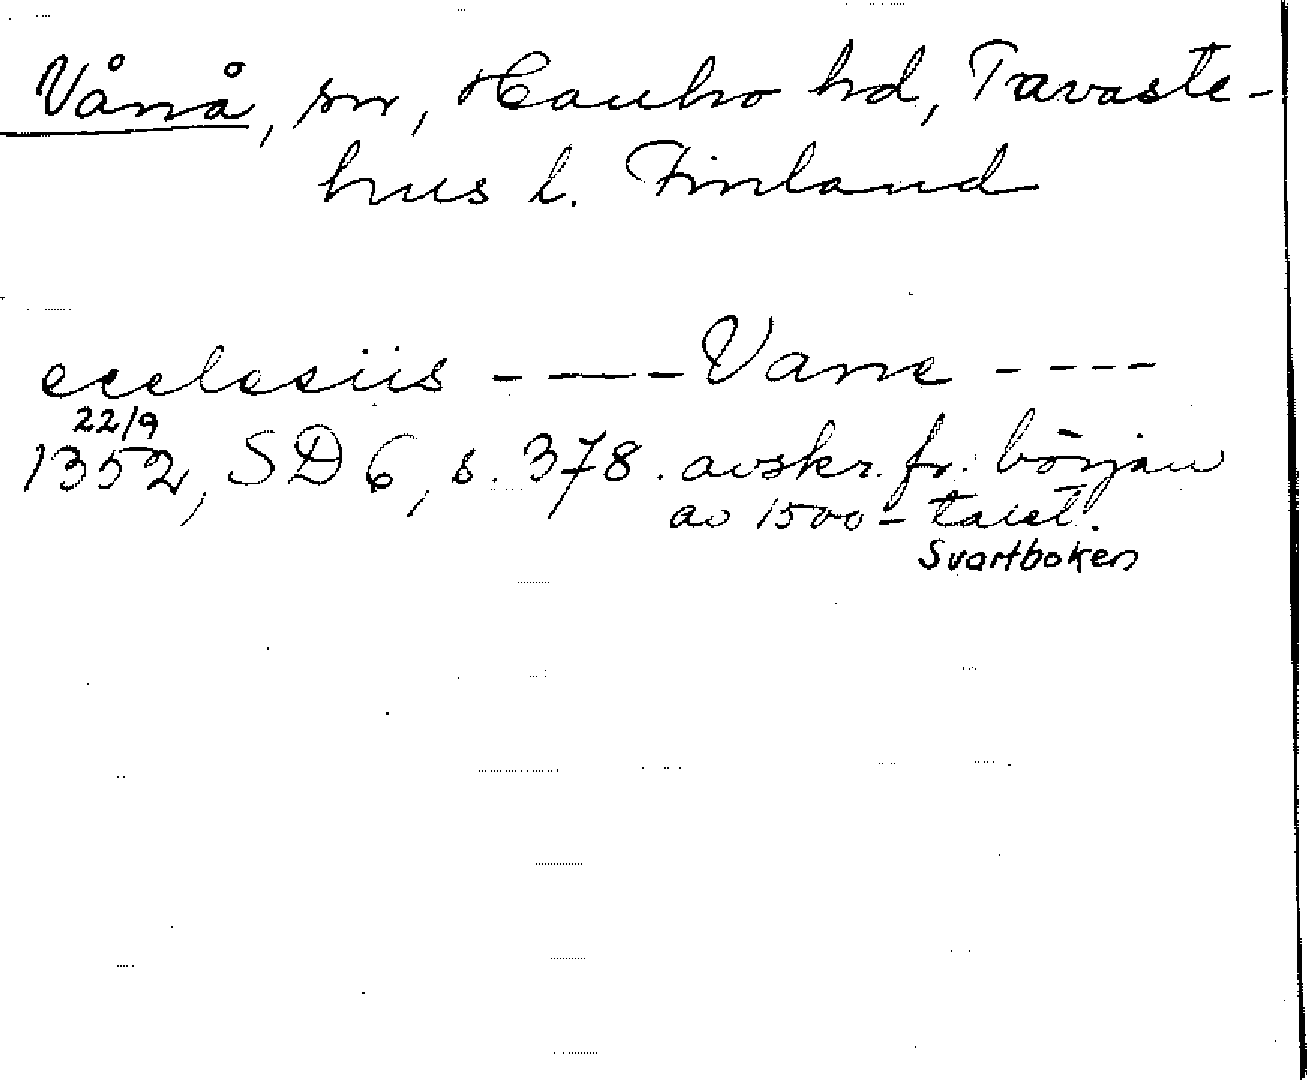 Vånå, sn, Hauho hd, Tavaste-
hus l. Finland
ecclesiis - - - - Vane - - - -
22/9
1352, SD 6, s. 378. avskr. fr. början
av 1500-talet.
Svartboken